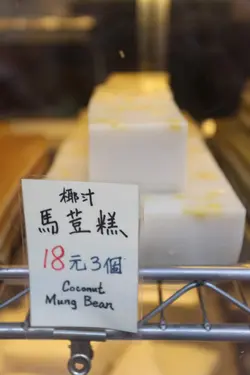 椰汁
馬荳糕
18元3個
Coconut
Mung Bean